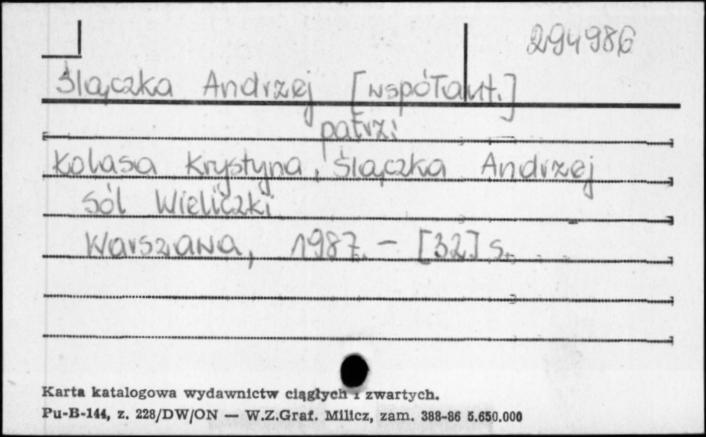 294986
Ślączka Andrzej [współaut.]
patrz:
Kolasa Krystyna, Ślączka Andrzej
Sól Wieliczki
Warszawa, 1987. – [32] s.
Karta katalogowa wydawnictw ciągłych i zwartych.
Pu-B-144, z. 228/DW/ON — W.Z.Graf. Milicz, zam. 388-86 5.650.000